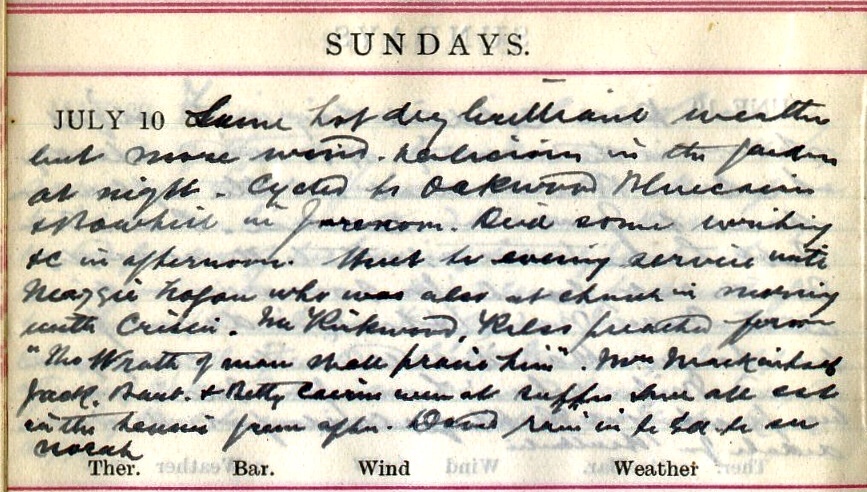 SUNDAYS.
JULY 10 Same hot dry brilliant weather
but more wind. Delicious in the garden
at night. Cycled to Oakwood
& Bowhill in forenoon. Did some writing
&c in afternoon. Went to evening service with
Maggie Hogan who was also at church in morning
with Crissie. Mr Kirkwood, Kelso preached from
"The Wrath of man shall praise him". Mrs Mackintosh
Jack, & Betty Cairns were at supper have all eat
in the tennis from after. David in to to
Norah
Ther. Bar. Wind Weather